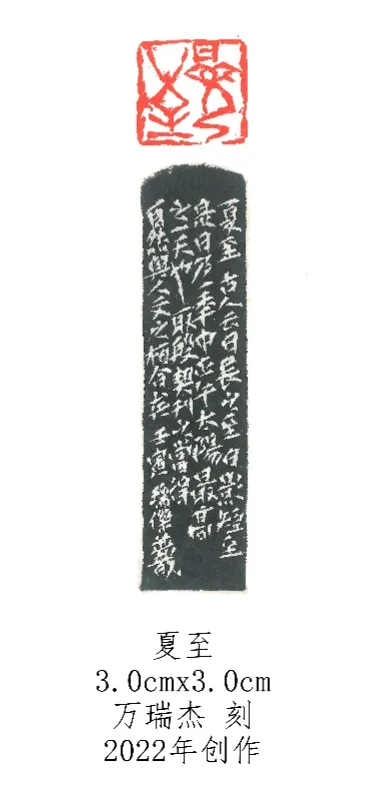 夏至
夏至 古人云日長之至日影短至
是日乃一年中正午太陽最高
之一天也 取殷契刊之當得
自然與人文之合 壬寅 瑞傑
夏至
3.0cmx3.0cm
万瑞杰 刻
2022年创作